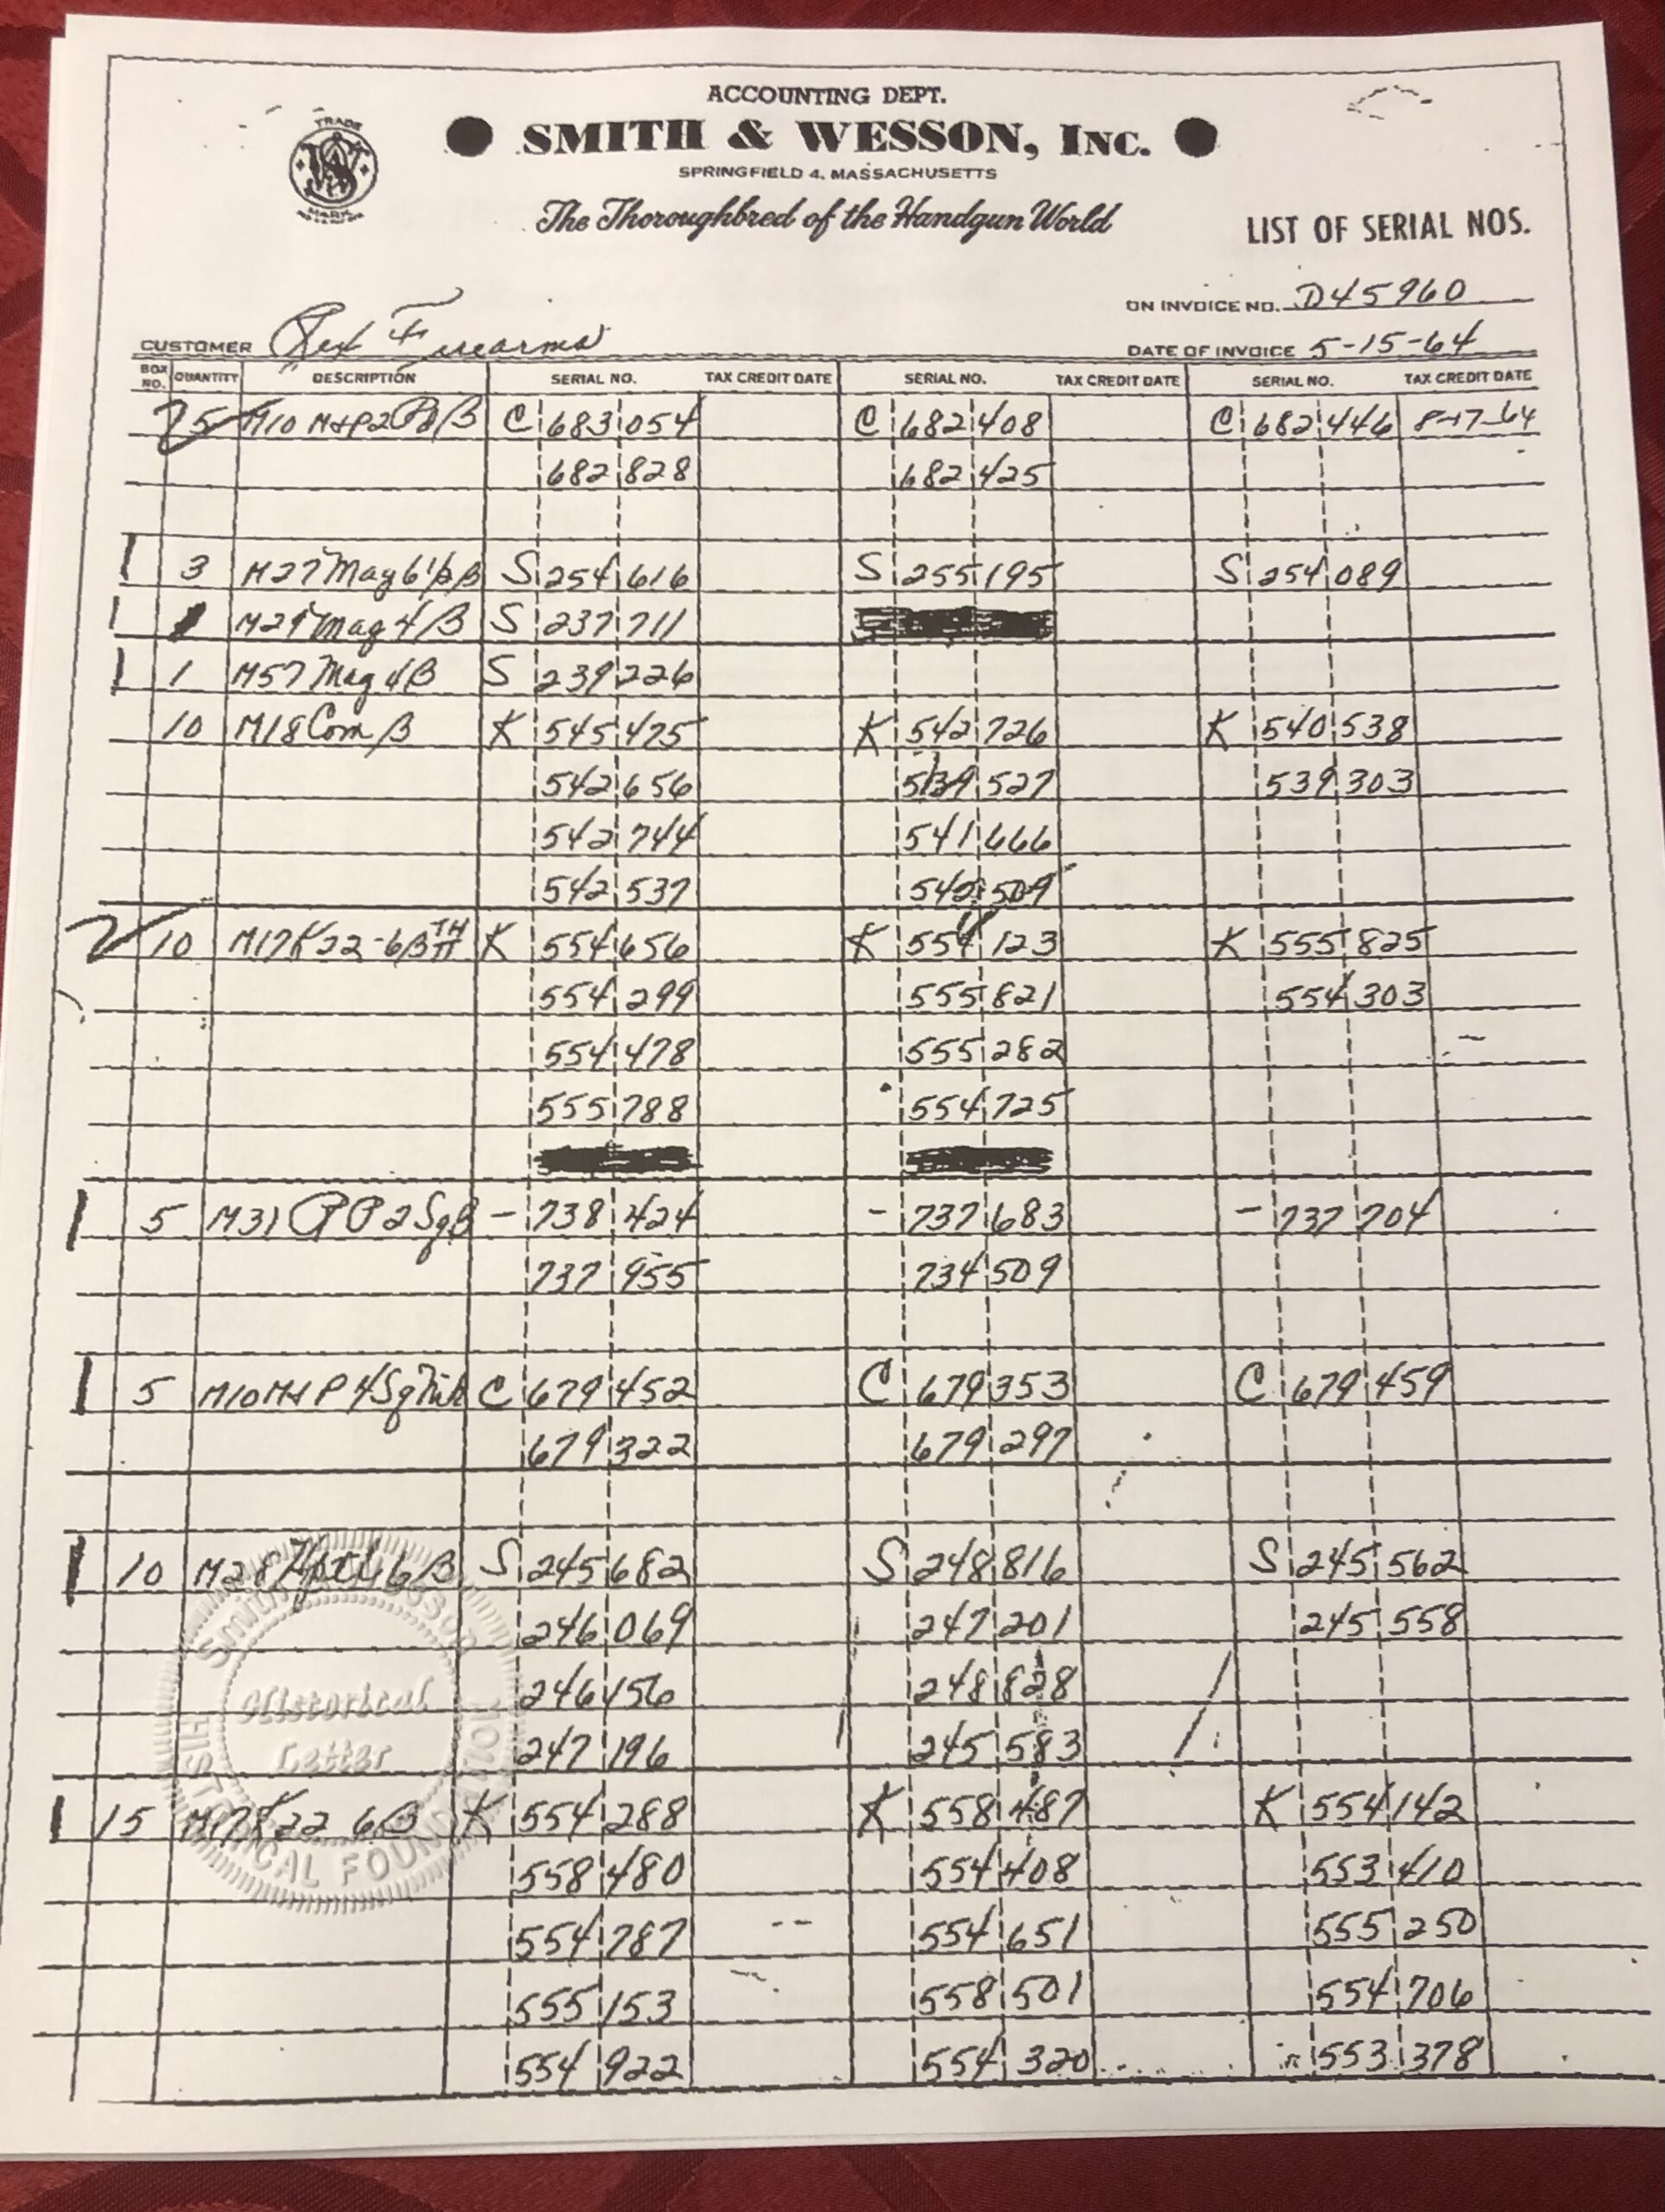 ACCOUNTING DEPT.
TRADE
SMITH & WESSON, INC.
MARK
SPRINGFIELD 4, MASSACHUSETTS
The Thoroughbred of the Handgun World
LIST OF SERIAL NOS.
ON INVOICE NO. D45960
CUSTOMER Rex Firearms
DATE OF INVOICE 5-15-64
BOX NO. QUANTITY DESCRIPTION SERIAL NO. TAX CREDIT DATE SERIAL NO. TAX CREDIT DATE SERIAL NO. TAX CREDIT DATE
5 M10 M&P2 B C 683 054 C 682 408 C 682 446 8-17-64
682 828 682 425
1 3 M27 Mag 6½ B S 254 616 S 255 195 S 254 089
1 1 M29 Mag 4 B S 237 711
1 1 M57 Mag 4 B S 239 226
10 M18 Com B K 545 475 K 542 726 K 540 538
542 656 539 527 539 303
542 744 541 666
542 537 542 509
2 10 M17K22-6B TH TT K 554 656 K 554 123 K 555 825
554 299 555 821 554 303
554 478 555 282
555 788 554 725
1 5 M31 RP 2 Sq B - 738 424 - 737 683 - 737 704
737 955 734 509
1 5 M10 M&P 4 Sq C 679 452 C 679 353 C 679 459
679 322 679 297
1 10 M28 6 B S 245 682 S 248 816 S 245 562
246 069 247 201 245 558
246 156 248 828
247 196 245 583
1 15 M17K22 6B K 554 288 K 558 487 K 554 142
558 480 554 408 553 410
554 787 554 651 555 250
555 153 558 501 554 706
554 922 554 320 553 378
SMITH & WESSON
Historical
Letter
HISTORICAL FOUNDATION